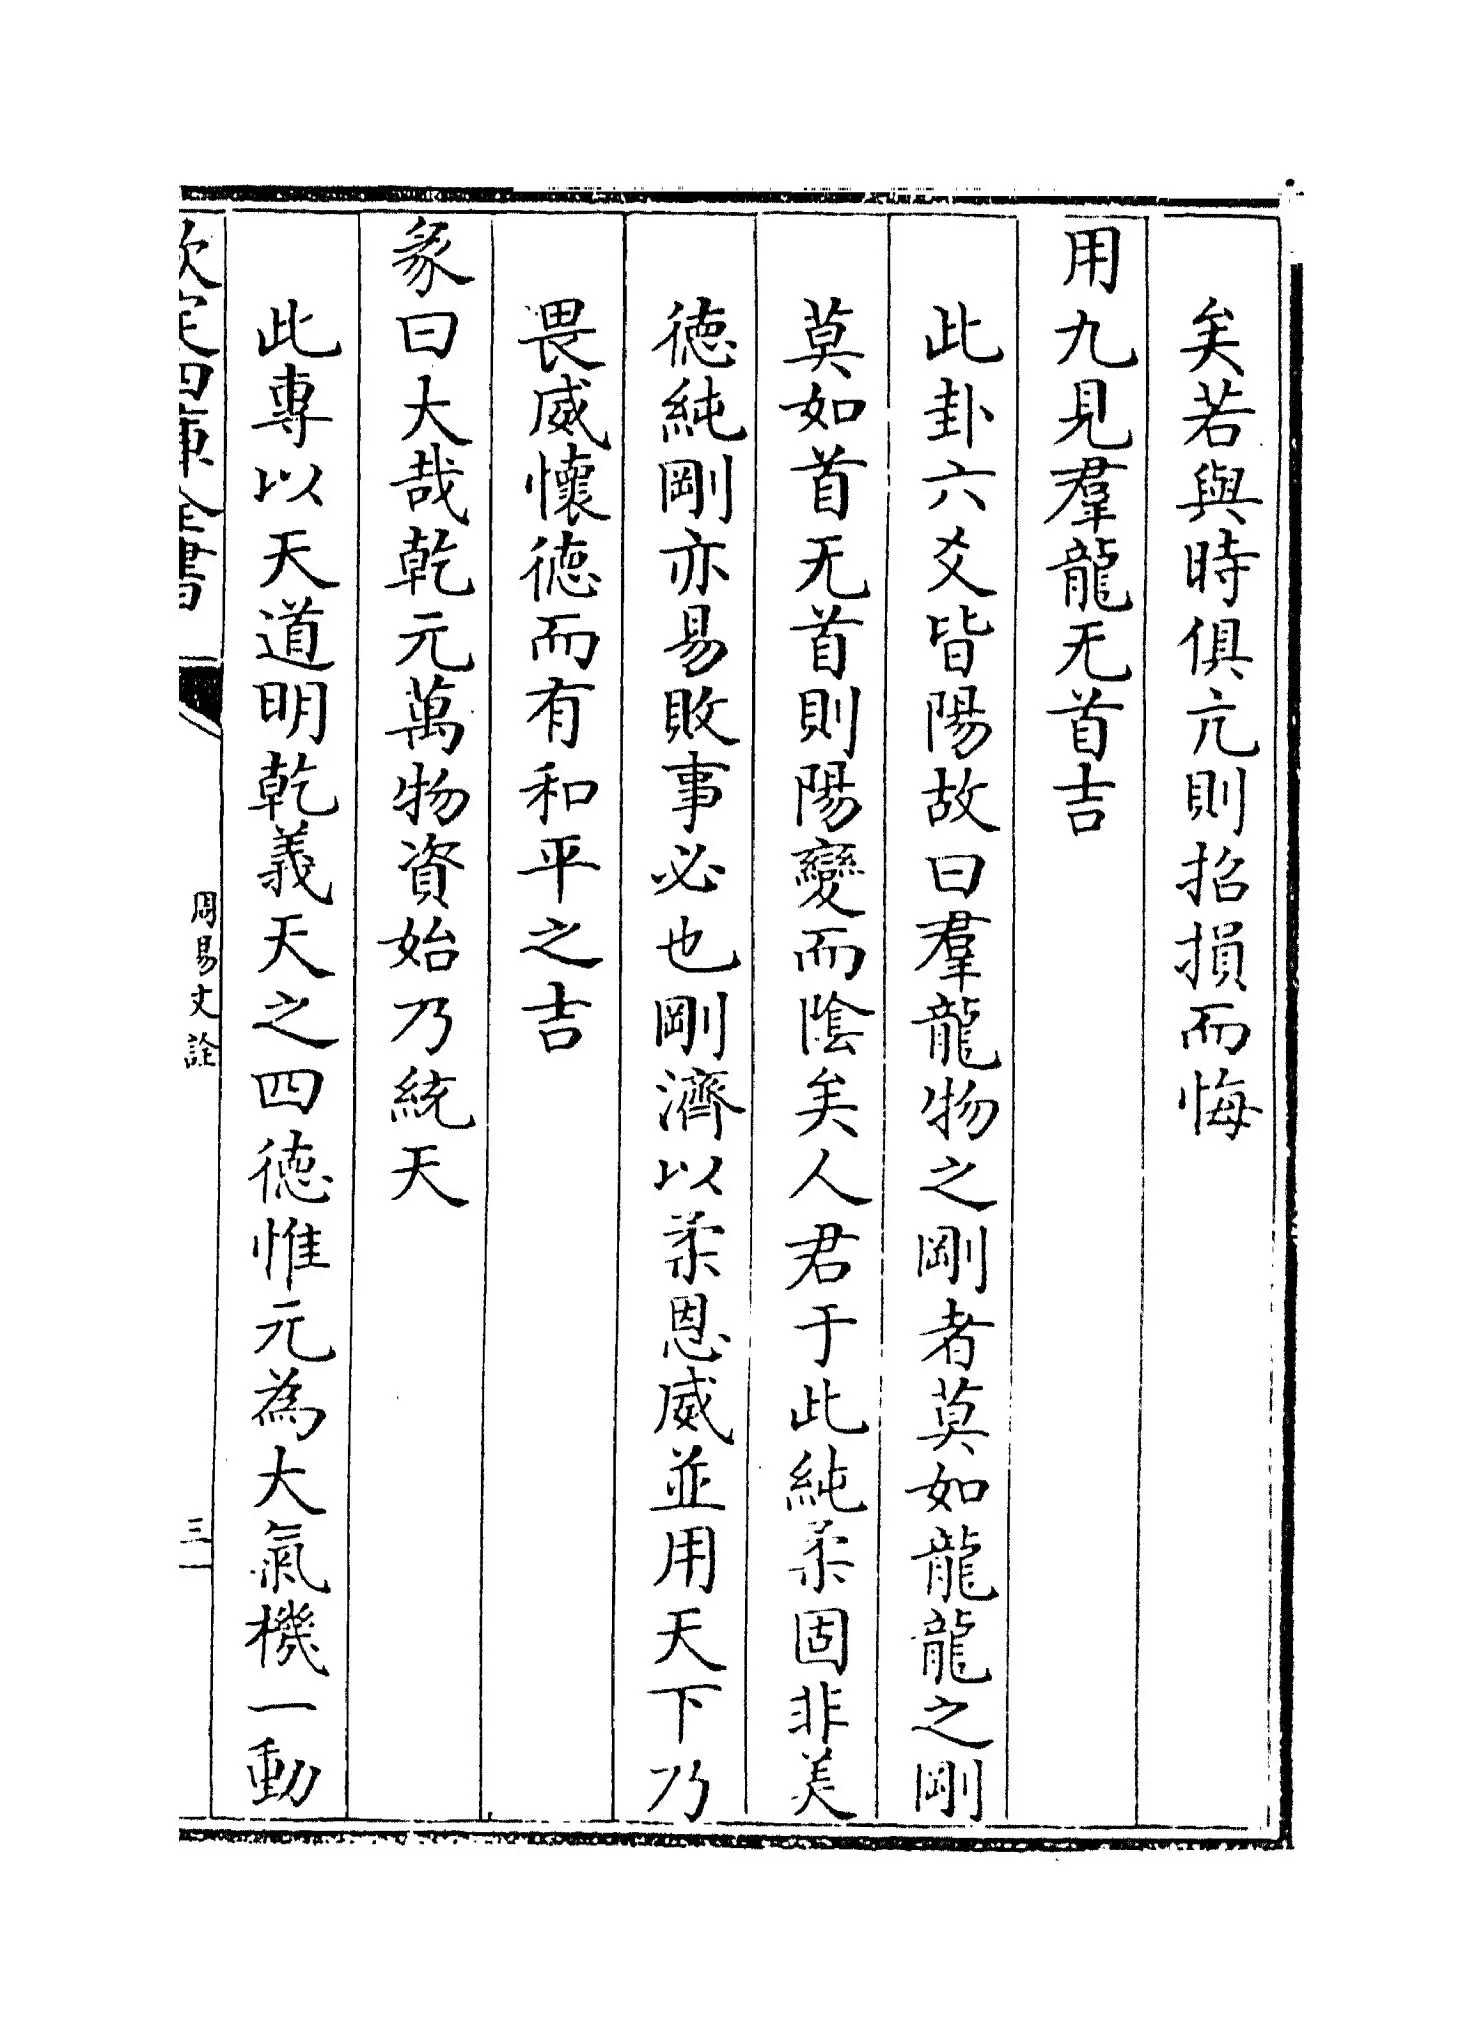 矣若與時俱亢則招損而悔
用九見羣龍无首吉
此卦六爻皆陽故曰羣龍物之剛者莫如龍龍之剛
莫如首无首則陽變而陰矣人君于此純柔固非美
徳純剛亦易敗事必也剛濟以柔恩威並用天下乃
畏威懷徳而有和平之吉
彖曰大哉乾元萬物資始乃統天
此專以天道明乾義天之四徳惟元為大氣機一動
欽定四庫全書
周易文詮
三